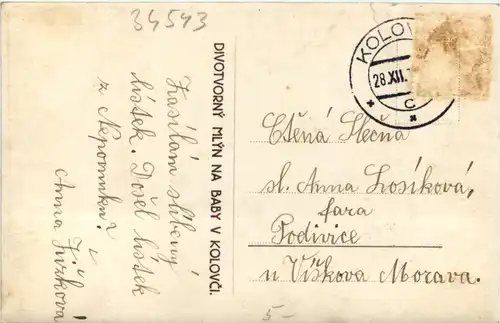 34543
Zasílám slíbený
lístek. Došel lístek
z Nepomuku?
Anna Jizková
DIVOTVORNÝ MLÝN NA BABY V KOLOVČI.
KOLOV
28.XII.
C
Ctěná Slečna
sl. Anna Losíková,
fara
Podivice
u Víškova Morava.
5-